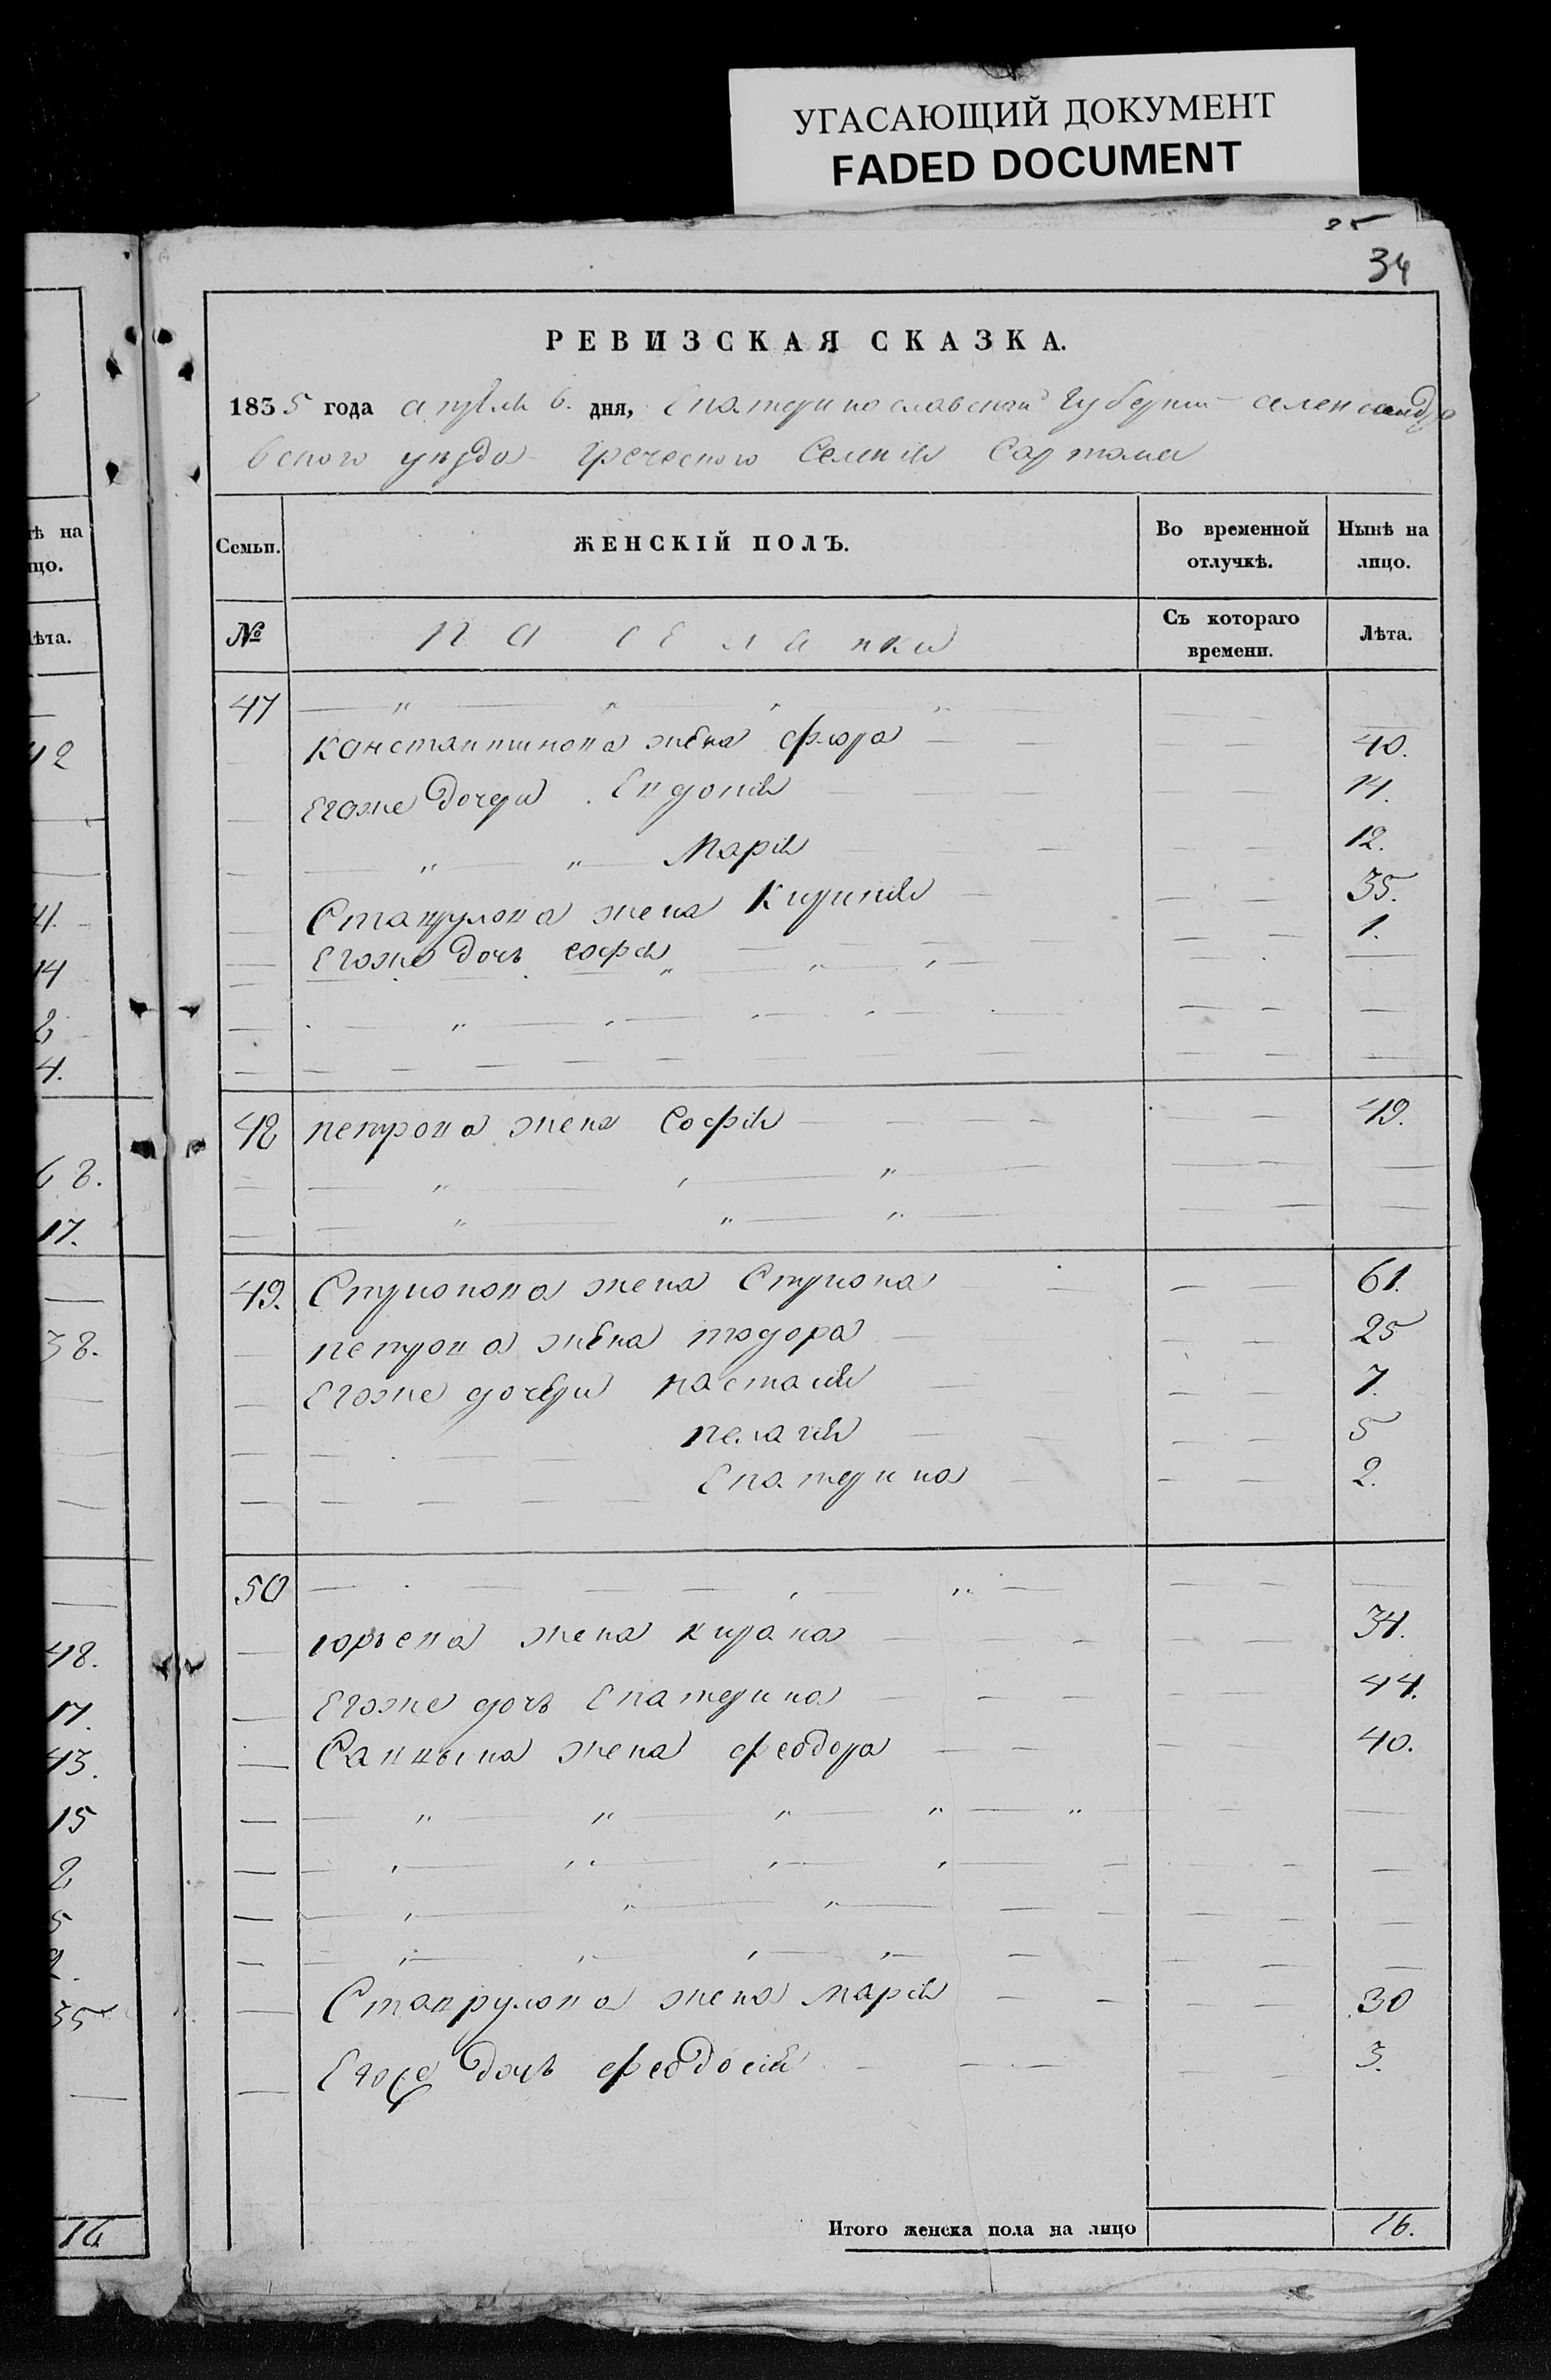 УГАСАЮЩИЙ ДОКУМЕНТ
FADED DOCUMENT
25
34
РЕВИЗСКАЯ СКАЗКА.
1835 года апрѣля 6. дня, Екатеринославской Губерніи александро
вского уѣзда греческого Селенія Сартана
Семьи.
ЖЕНСКІЙ ПОЛЪ.
Во временной отлучкѣ.
Нынѣ на лицо.
№
паселанки
Съ котораго времени.
Лѣта.
47
Константинова жена флора 40.
Егоже дочери Евдокія 14.
" " Марія 12.
Ставрулова жена Кирикія 35.
Егоже дочь софія 1.
48 петрова жена Софія 49.
49. Стуионова жена Стуиона 61.
петрова жена тодора 25
Егоже дочери настасія 7.
пелагія 5
Екатерина 2.
50
юрьева жена кирана 34.
Егоже дочь Екатерина 44.
Саввына жена феодора 40.
Ставрулова жена марія 30
Егоже дочь феодосія 3.
Итого женска пола на лицо 16.
ѣ на
цо.
ѣта.
42
4.
14
2
4.
68.
17.
38.
48.
17.
43.
15
2
5
2.
35
16